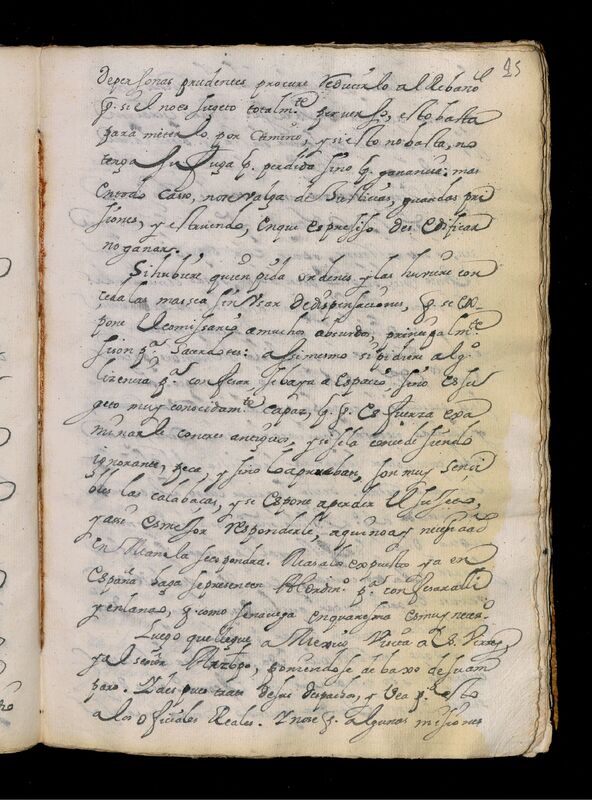 25
de personas prudentes procure reducirlo al Rebaño
q. si el no es sugeto totalmte perverso, esto basta
para meterlo por camino, y si esto no basta, no
tenga su fuga p. perdida sino p. ganancia: mas
en todo caso, no se valga de Justicias, guardas pri
siones, y estruendo, en que es presiso des edificar
no ganar.
Si hubiere quien pida ordenes y las huviere con
ceda las mas sea sin usar de dispensaciones, q. se ex
pone el comissario a muchos absurdos, principalmte
si son pa. Sacerdotes: assimesmo si pidiere algo.
licencia pa. confesar, se vaya a espacio, sino es su
geto muy conocidamte capaz, q. p. es fuerza exa
minarle con tres antiguos, y si se la concede siendo
ignorante, peca, y si no lo aprueban, son muy sensi
bles las calabacas, y se espone a perder el sugeto,
y assi es mejor responderle, aqui no ay necesidad
en Manila se compondra. Mas a lo expuesto ya en
España haga se presenten al ordino. pa. confesar alli
y en la nao, q. como se navega en quaresma es muy neceso.
Luego que llegue a Mexico Visite al S. Virrey,
y al señor Arzobpo, poniendose debaxo de su am
paro. Y despues trate de sus despachos, y vea pa. esto
a los oficiales Reales. Y note q. algunas misiones